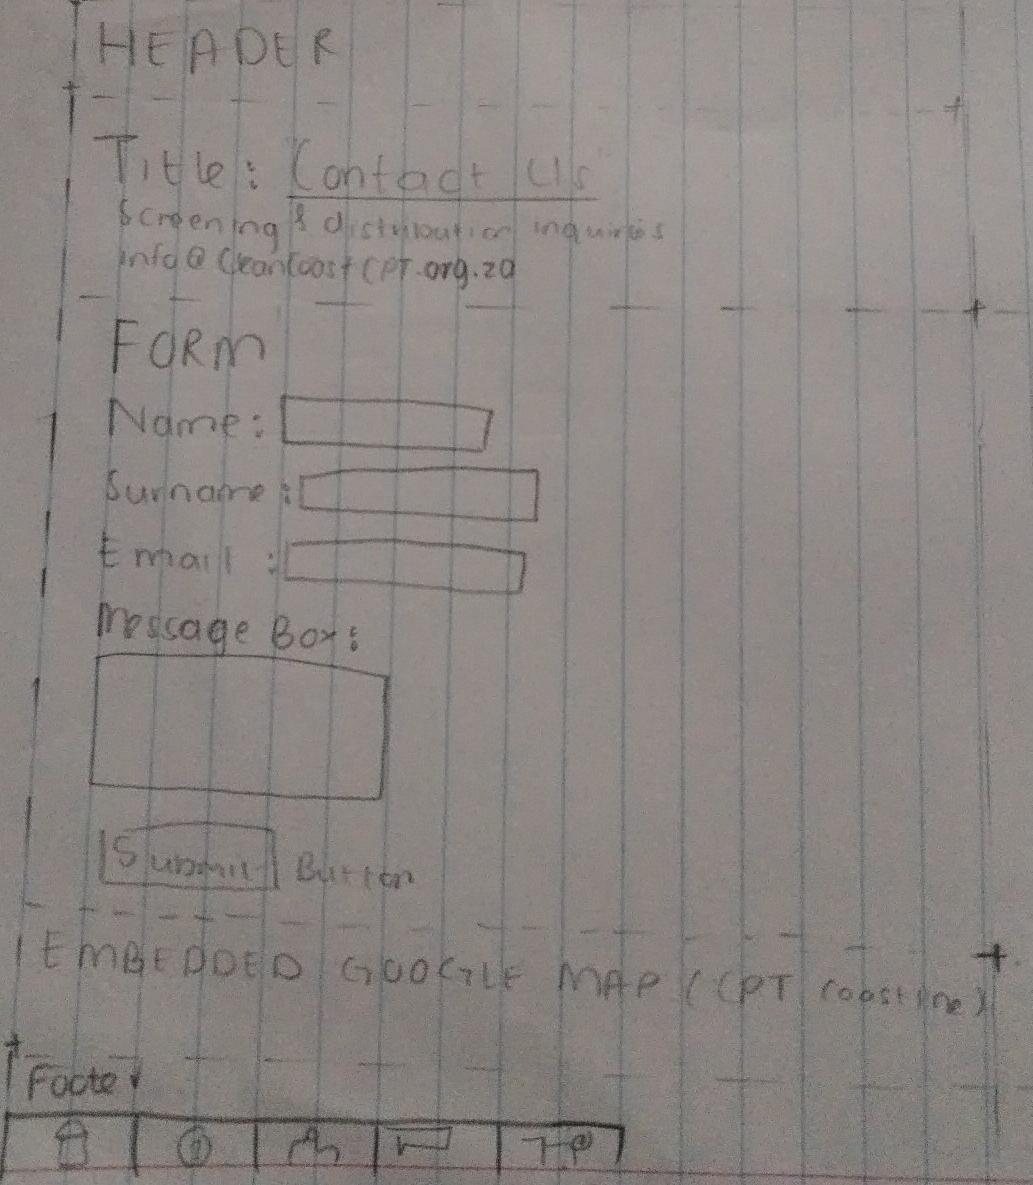 HEADER
Title: Contact Us
Screening & distribution inquiries
info@CleanCoastCPT.org.za
FORM
Name:
Surname:
Email:
Message Box:
Submit Button
EMBEDDED GOOGLE MAP (CPT coastline)
Footer